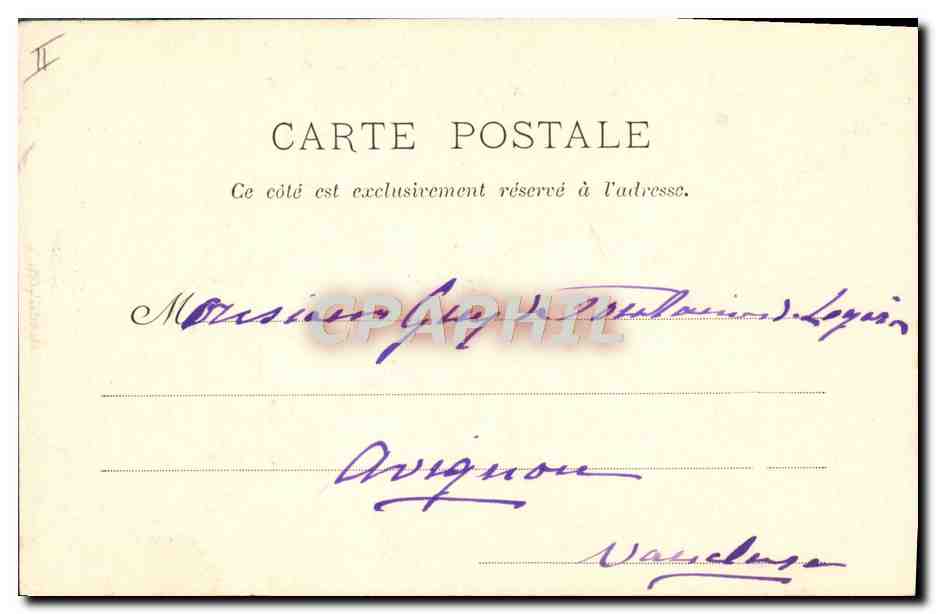 II
CARTE POSTALE
Ce côté est exclusivement réservé à l'adresse.
Monsieur Guy de de
CPAPHIL
Avignon
Vaucluse